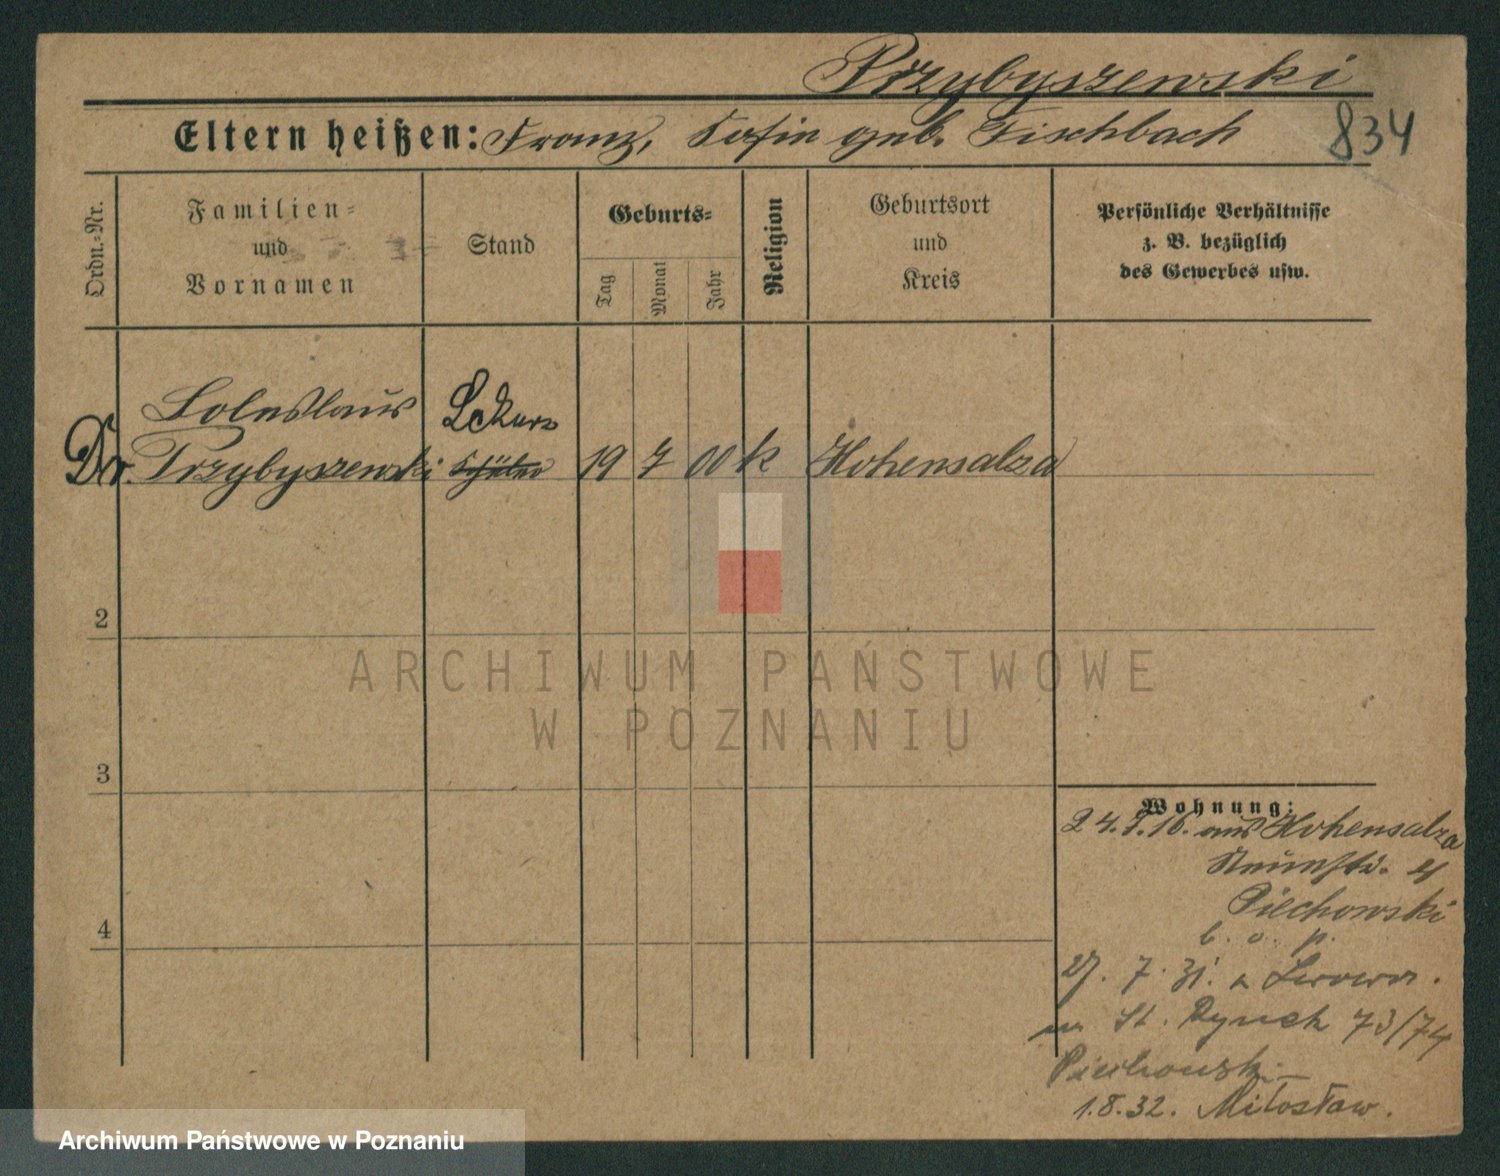 Przybyszewski
Eltern heißen: Franz, Sofie geb. Fischbach
834
Ordn.=Nr.
Familien=
und
Vornamen
Stand
Geburts=
Tag
Monat
Jahr
Religion
Geburtsort
und
Kreis
Persönliche Verhältnisse
z. B. bezüglich
des Gewerbes usw.
Boleslaus
Lekarz
Dr. Przybyszewski Schüler 19 7 00 k Hohensalza
2
3
4
Wohnung:
24.9.16. aus Hohensalza
Piechowski
b. o. p.
27. 7. 31. z Lwowa.
St. Rynek 73/74
Piechowski
1.8.32. Miłosław.
ARCHIWUM PAŃSTWOWE
W POZNANIU
Archiwum Państwowe w Poznaniu